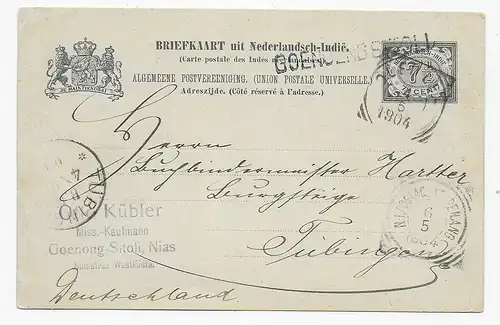 BRIEFKAART uit Nederlandsch-Indië.
(Carte postale des Indes néerlandaises.)
GOENOENGSITOLI
ALGEMEENE POSTVEREENIGING. (UNION POSTALE UNIVERSELLE.)
Adreszijde. (Côté réservé à l'adresse.)
JE MAINTIENDRAI
7½
CENT
5
1904
Herrn
Buchbindermeister Hartter
Burgsteige
Tübingen
Deutschland
TÜBIN
Kübler
Miss.-Kaufmann
Goenong-Sitoli, Nias
Sumatras Westküste
N.I. POSTAG. PENANG
6
5
1904